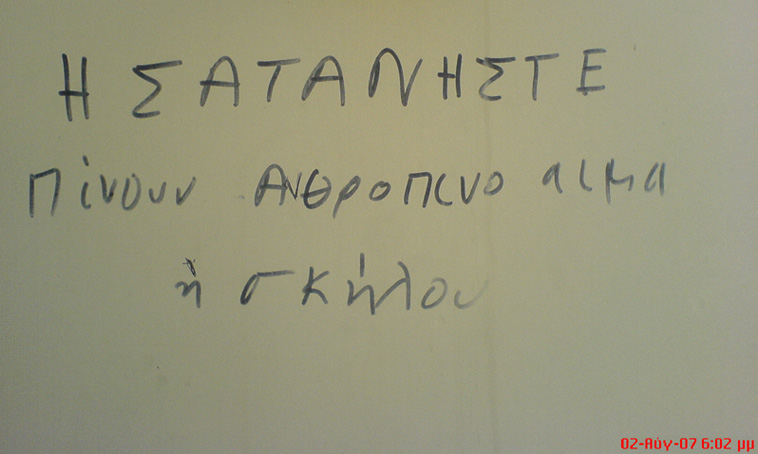 Η ΣΑΤΑΝΗΣΤΕ
Πίνουν ΑΝΘΡΟΠΙΝΟ αιμα
ή σκήλου
02-Αύγ-07 6:02 μμ